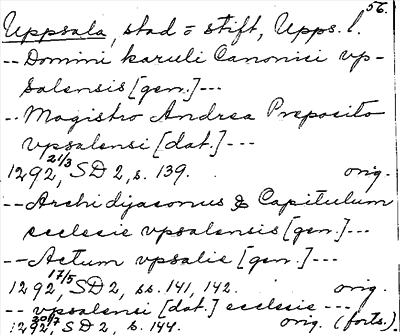 56.
Uppsala, stad o stift, Upps. l.
-- Domini karuli Canonici vp-
salensis [gen.] ---
-- Magistro Andrea Preposito
vpsalensi [dat.] ---
1292 21/3, SD 2, s. 139. orig.
-- Archidyaconus & Capitulum
ecclesie vpsalensis [gen.] ---
-- Actum vpsalie [gen.] ---
1292 17/5, SD 2, ss. 141, 142. orig.
-- vpsalensi [dat.] ecclesie ---
1292 30/7, SD 2, s. 144. orig. (forts.)